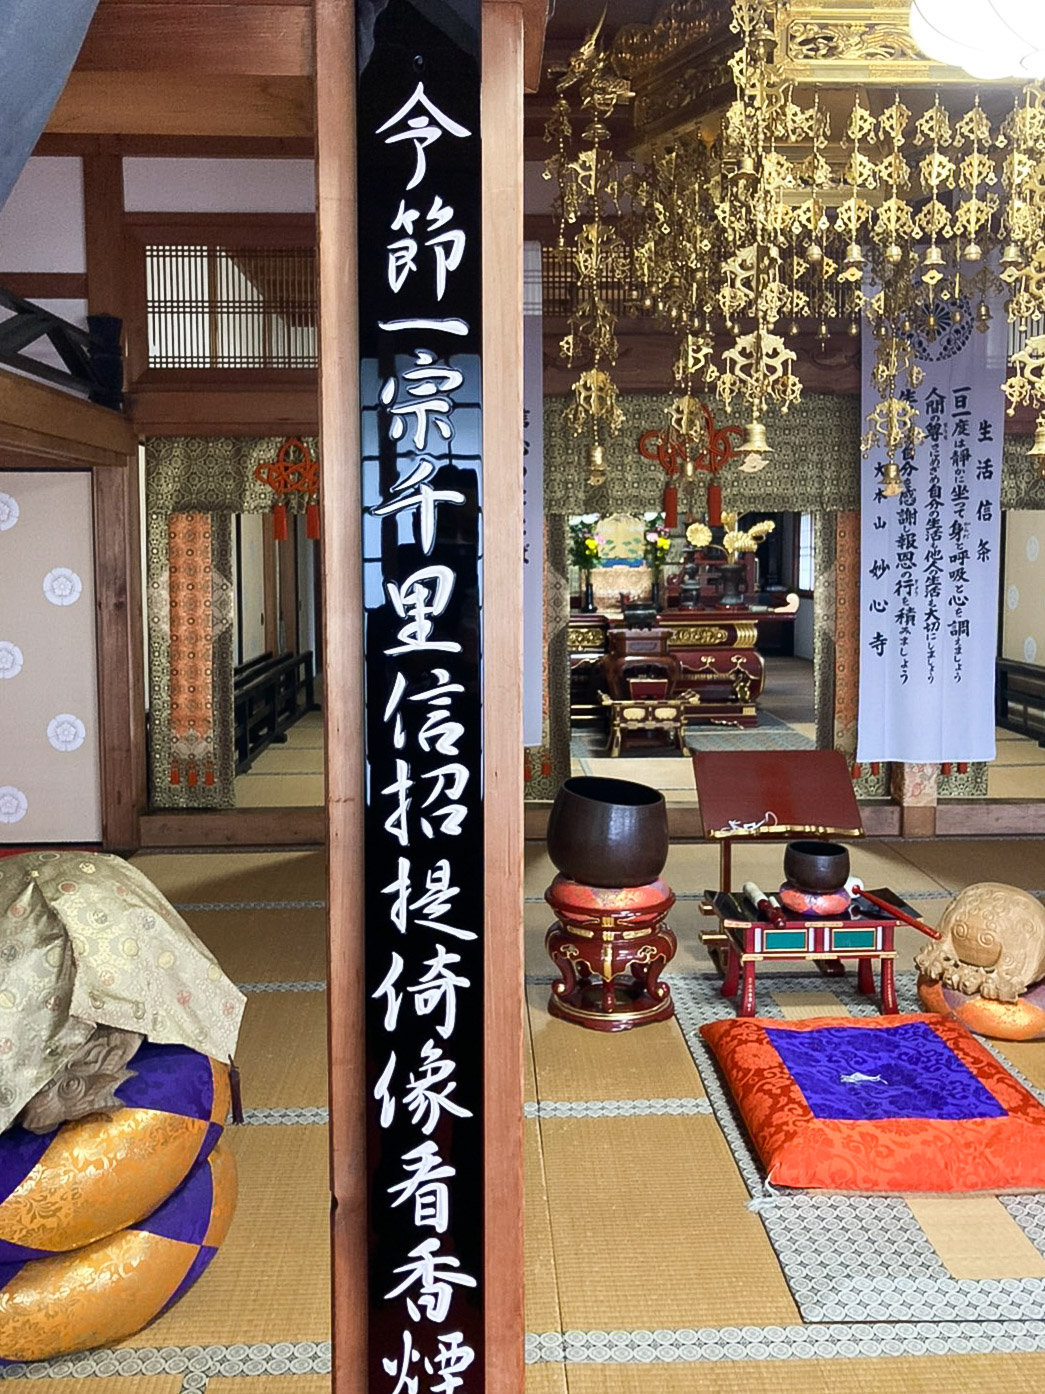 今節一宗千里信招提倚像看香煙
生活信条
一日一度は静かに坐って身と呼吸と心を調えましょう
人間の尊さにめざめ自分の生活も他人の生活も大切にしましょう
生 自分を感謝し報恩の行を積みましょう
大本山妙心寺